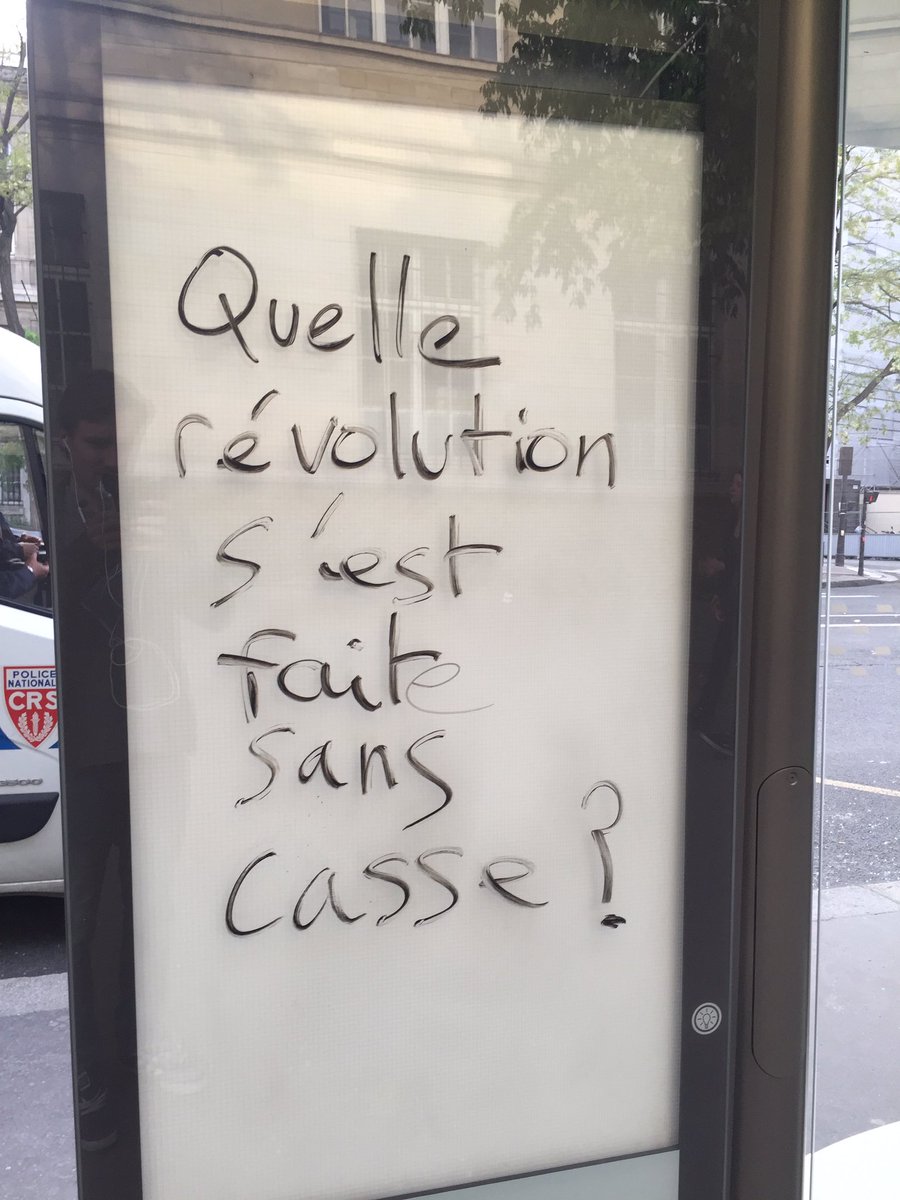 Quelle
révolution
s'est
faite
sans
casse ?
POLICE
NATIONALE
CRS